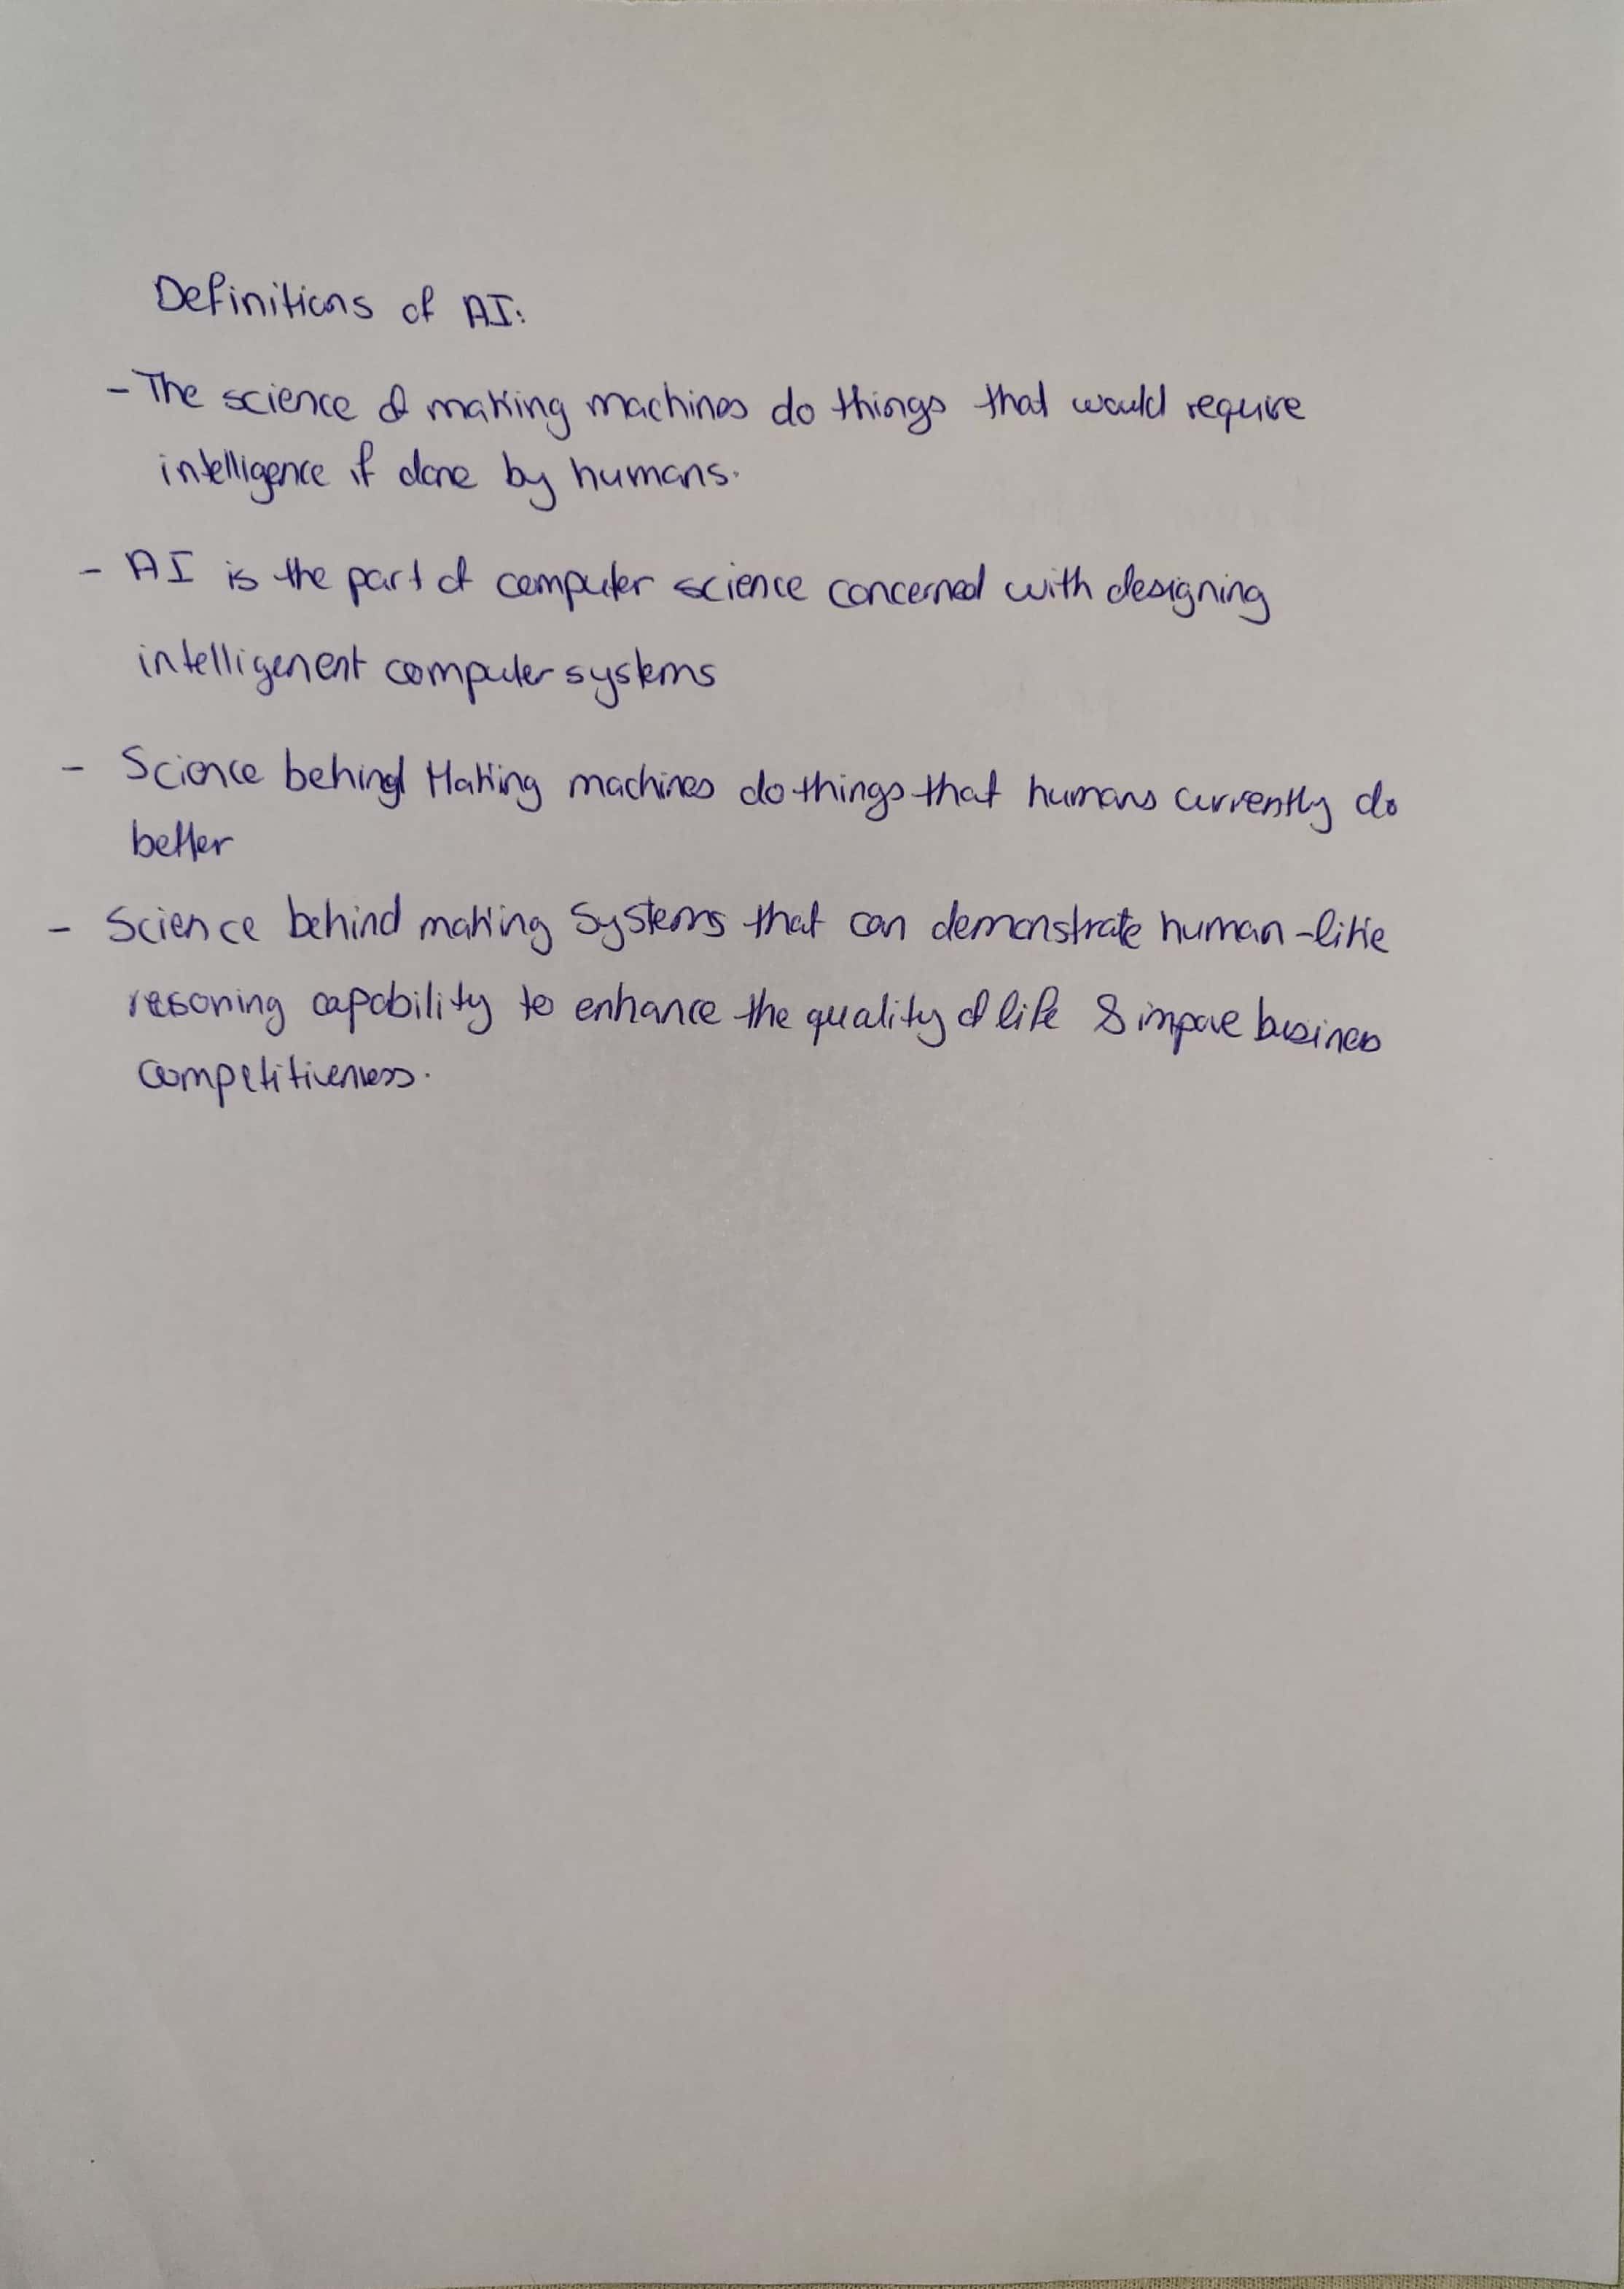 Definitions of AI:
- The science of making machines do things that would require
intelligence if done by humans.
- AI is the part of computer science concerned with designing
intelligenent computer systems
- Science behind Making machines do things that humans currently do
better
- Science behind making systems that can demonstrate human-like
resoning capability to enhance the quality of life & impove business
competitiveness.